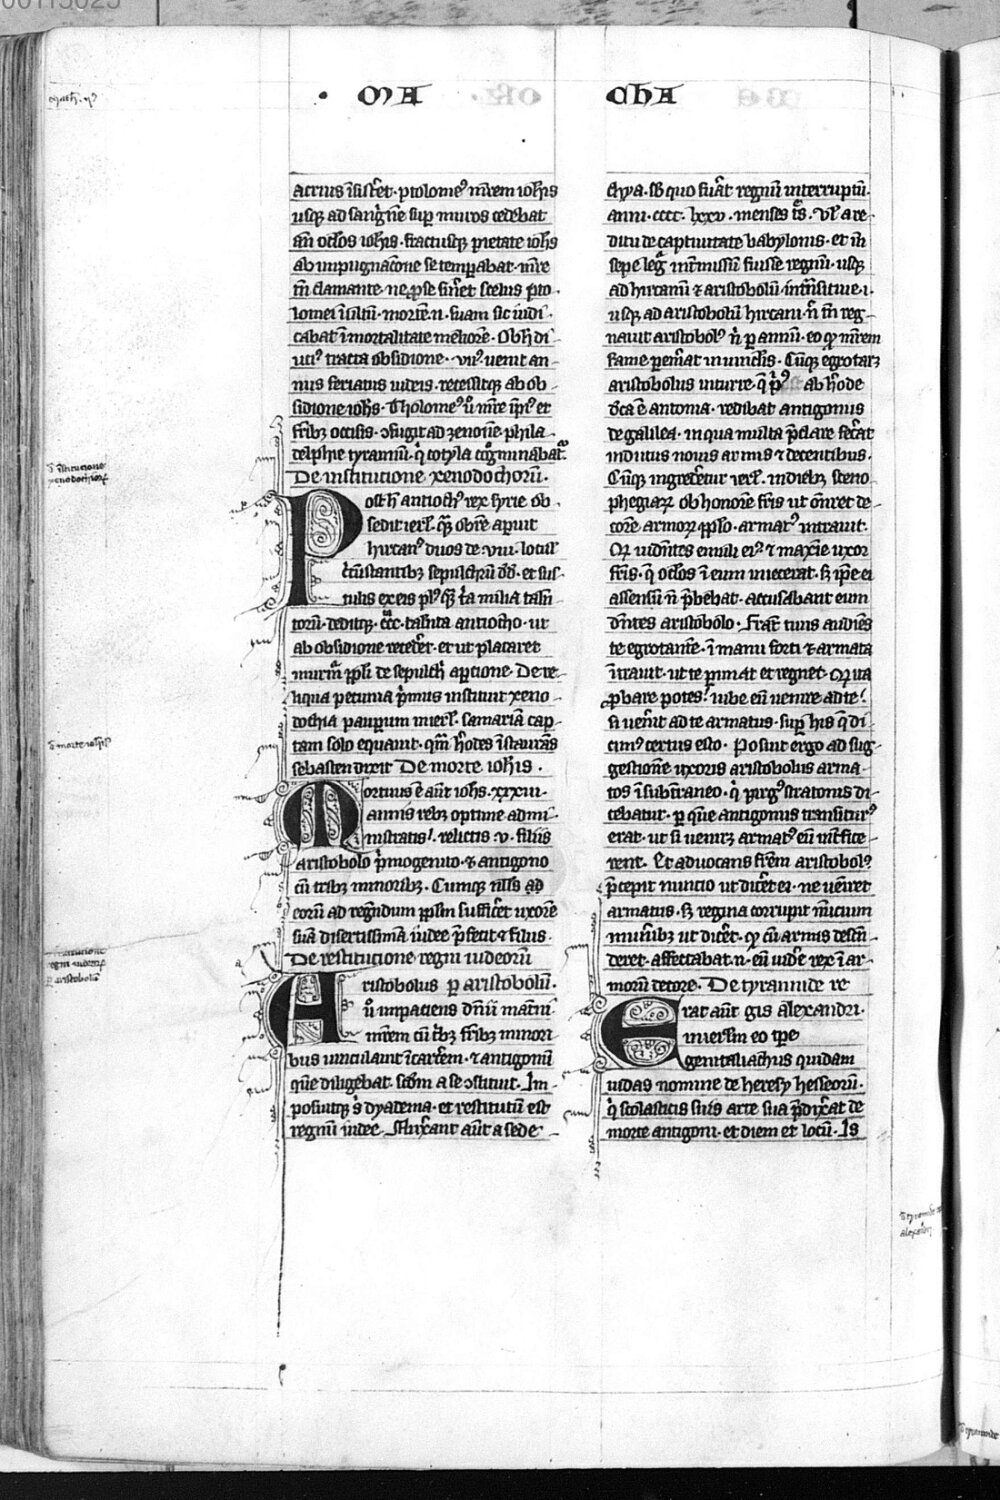 · MA CHA
acrius īsistēt · ptolomeꝰ mr̄em ioh̄is
usqꝫ ad sanguinē sup̄ muros cedebat
an̄ oc̄los ioh̄is · fractusqꝫ pietate ioh̄s
ab impugnac̄one se temꝑabat · mr̄e
tn̄ clamante · ne ꝓ se sin̄et scelus pto
lomei īultū · morte .n. suam sic iudi
cabat īmortalitate meliorē · Ob h̄ di
utiꝰ tracta obsidione · viiꝰ uenit an
nus feriatus iudeis · recessitqꝫ ab ob
sidione ioh̄s · Tholomeꝰ u̅ mr̄e ip̄iꝰ et
fr̄ibꝫ occisis · ꝯfugit ad zenonē phila
delphie tyrannū · q̇ cotyla cogn̄minabat᷑
De institutione xenodochiorū.
Post h̄ antiochꝰ rex syrie ob
sedit ierl̄m · quā ob rē aꝑuit
hircanꝰ duos de viii · locul̄
circūstantibꝫ sepulchrū dd̄ · et sus
tulit ex eis plꝰ qꝫ t̄a milia talen
torū · deditqꝫ · ccc · talēta antiocho · ut
ab obsidione recedēt · et ut placaret
murmur ppl̄i de sepulchri aꝑtione · De re
liqua pecunia p̄mus instituit xeno
dochia pauꝑum in ierl̄m · samariā cap
tam solo equauit · quam h̄odes īstaurās
sebasten dixit De morte iohis ·
Mortuus ē aūt ioh̄s · xxxiii ·
annis rebꝫ optime admi
nistratis · relictis · v · filiis
aristobolo p̄mogenito · & antigono
cū tribꝫ minoribꝫ · Cumqꝫ nullꝰ ad
eorū ad regēdum ppl̄m sufficēt uxorē
suā disertissimā iudee p̄fecit & filius ·
De restitutione regni iudeorū
Aristobolus ꝑ aristobolū ·
u̅ impaciens dn̄ii mat̄ni
mr̄em cū tribꝫ fr̄ibꝫ minori
bus uinculauit ī carc̄em · & antigonū
quē diligebat · sc̄dm a se ꝯstituit · Im
posuitqꝫ sibi dyadema · et restitutū est
regnū iudee · Fluxerant aūt a sede
chya · sb̄ quo fuāt regnū interruptū ·
anni · cccc · lxxv · menses tres · Vl̄ a re
ditu de captiuitate babylonis · et in
sepe legr̄ int̄missū fuisse regnū · usqꝫ
ad hircanū & aristobolū · intrāsitiue .i.
usqꝫ ad aristobolū hircani · n̄ tn̄ reg
nauit aristobolꝰ n̄ ꝑ annū · eo ꝙ mr̄em
fame ꝑemerat in uinclis · Cūqꝫ egrotaret
aristobolus in turre · q̄ pꝰ ab h̄ode
dc̄a ē antonia · redibat antigonus
de galilea · in qua multa p̄clare fec̄at
indutus nouis armis & decentibus ·
Cūqꝫ ingredēet᷑ ierl̄m · in diebꝫ sceno
phegiaꝝ ob honorē fr̄is ut ōnr̄et de
core armoꝝ ppl̄o · armatꝰ intrauit ·
Qꝫ uidn̄tes emuli eiꝰ & maxīe uxor
fr̄is · q̄ oc̄los ī eum iniecerat · sꝫ ip̄e ei
assensū n̄ p̄bebat · accusabant eum
dn̄tes aristobolo · Frat̄ tuus audiēs
te egrotantē · ī manu forti & armata
ītrauit · ut te ꝑimat et regnet · Qꝫ ua
ꝓbare potes · iube eū uenire ad te
si uen̄it ad te armatus · suꝑ his q̄ di
cimꝰ certus esto · Posuit ergo ad sug
gestionē uxoris aristobolus arma
tos ī subt̄raneo · q̇ pirgꝰ stratonis di
cebatur · ꝑ que antigonus transiturꝰ
erat · ut si ueniret armatꝰ eū int̄fice
rent · Et aduocans fr̄em aristobolꝰ
p̄cepit nuncio ut dic̄et ei · ne uen̄iret
armatus · sꝫ regina corrupit nuncium
munibꝫ ut dic̄et · ꝙ cū armis descēn
deret · affectabat .n. eū uid̄e rex ī ar
morū decore · De tyrannide re
Erat aūt gis alexandri ·
in ierl̄m eo tꝑe
genital iachus quidam
iudas nomine de heresy hesseorū ·
q̇ scolasticis suis arte sua p̄dix̄at de
morte antigoni · et diem et locū · Is
d̄ īstitucione
xenodochioꝝ
d̄ morte ioh̄is
regni iudeoꝝ
ꝑ aristobolū
d̄ tyrannide
alexādri